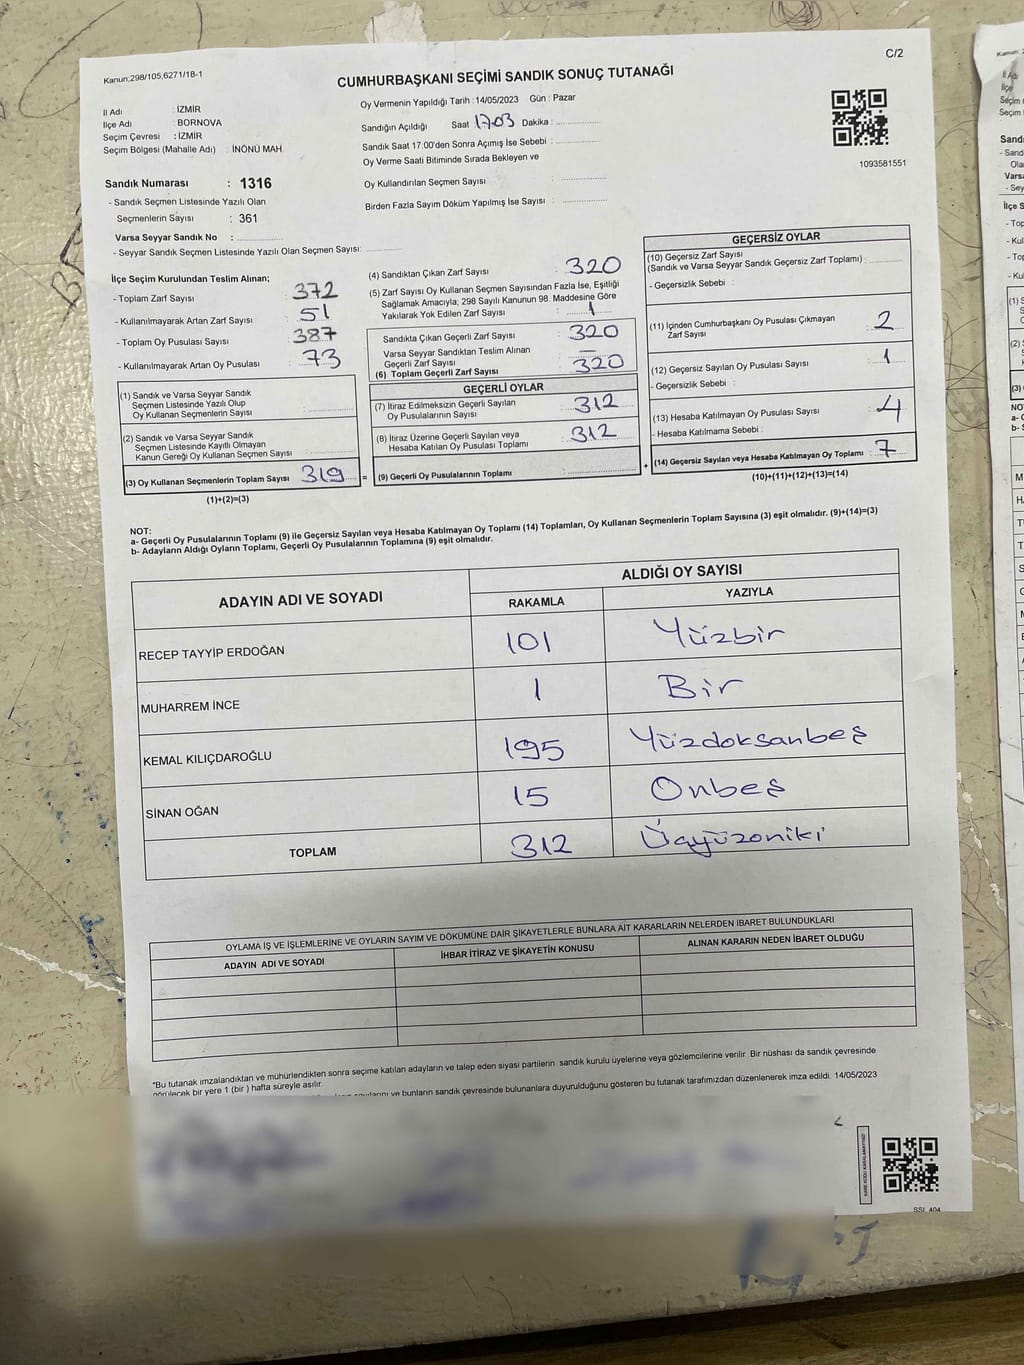 C/2
Kanun;298/105,6271/18-1
CUMHURBAŞKANI SEÇİMİ SANDIK SONUÇ TUTANAĞI
İl Adı : İZMİR
İlçe Adı : BORNOVA
Seçim Çevresi : İZMİR
Seçim Bölgesi (Mahalle Adı) : İNÖNÜ MAH
Oy Vermenin Yapıldığı Tarih : 14/05/2023 Gün : Pazar
Sandığın Açıldığı Saat 17.03 Dakika :
Sandık Saat 17.00'den Sonra Açımış İse Sebebi :
Oy Verme Saati Bitiminde Sırada Bekleyen ve
Oy Kullandırılan Seçmen Sayısı :
Birden Fazla Sayım Döküm Yapılmış İse Sayısı :
1093581551
Sandık Numarası : 1316
- Sandık Seçmen Listesinde Yazılı Olan
Seçmenlerin Sayısı : 361
Varsa Seyyar Sandık No :
- Seyyar Sandık Seçmen Listesinde Yazılı Olan Seçmen Sayısı:
İlçe Seçim Kurulundan Teslim Alınan;
- Toplam Zarf Sayısı : 372
- Kullanılmayarak Artan Zarf Sayısı : 51
- Toplam Oy Pusulası Sayısı : 387
- Kullanılmayarak Artan Oy Pusulası : 73
(1) Sandık ve Varsa Seyyar Sandık
Seçmen Listesinde Yazılı Olup
Oy Kullanan Seçmenlerin Sayısı :
(2) Sandık ve Varsa Seyyar Sandık
Seçmen Listesinde Kayıtlı Olmayan
Kanun Gereği Oy Kullanan Seçmen Sayısı :
(3) Oy Kullanan Seçmenlerin Toplam Sayısı 319 =
(1)+(2)=(3)
(4) Sandıktan Çıkan Zarf Sayısı : 320
(5) Zarf Sayısı Oy Kullanan Seçmen Sayısından Fazla İse, Eşitliği
Sağlamak Amacıyla; 298 Sayılı Kanunun 98. Maddesine Göre
Yakılarak Yok Edilen Zarf Sayısı : 1
Sandıkta Çıkan Geçerli Zarf Sayısı : 320
Varsa Seyyar Sandıktan Teslim Alınan
Geçerli Zarf Sayısı : –
(6) Toplam Geçerli Zarf Sayısı : 320
GEÇERLİ OYLAR
(7) İtiraz Edilmeksizin Geçerli Sayılan
Oy Pusulalarının Sayısı : 312
(8) İtiraz Üzerine Geçerli Sayılan veya
Hesaba Katılan Oy Pusulası Toplamı : 312
(9) Geçerli Oy Pusulalarının Toplamı : +
GEÇERSİZ OYLAR
(10) Geçersiz Zarf Sayısı
(Sandık ve Varsa Seyyar Sandık Geçersiz Zarf Toplamı) :
- Geçersizlik Sebebi :
(11) İçinden Cumhurbaşkanı Oy Pusulası Çıkmayan
Zarf Sayısı : 2
(12) Geçersiz Sayılan Oy Pusulası Sayısı : 1
- Geçersizlik Sebebi :
(13) Hesaba Katılmayan Oy Pusulası Sayısı : 4
- Hesaba Katılmama Sebebi :
(14) Geçersiz Sayılan veya Hesaba Katılmayan Oy Toplamı : 7
(10)+(11)+(12)+(13)=(14)
NOT:
a- Geçerli Oy Pusulalarının Toplamı (9) ile Geçersiz Sayılan veya Hesaba Katılmayan Oy Toplamı (14) Toplamları, Oy Kullanan Seçmenlerin Toplam Sayısına (3) eşit olmalıdır. (9)+(14)=(3)
b- Adayların Aldığı Oyların Toplamı, Geçerli Oy Pusulalarının Toplamına (9) eşit olmalıdır.
ADAYIN ADI VE SOYADI
ALDIĞI OY SAYISI
RAKAMLA YAZIYLA
RECEP TAYYİP ERDOĞAN 101 Yüzbir
MUHARREM İNCE 1 Bir
KEMAL KILIÇDAROĞLU 195 Yüzdoksanbeş
SİNAN OĞAN 15 Onbeş
TOPLAM 312 Üçyüzoniki
OYLAMA İŞ VE İŞLEMLERİNE VE OYLARIN SAYIM VE DÖKÜMÜNE DAİR ŞİKAYETLERLE BUNLARA AİT KARARLARIN NELERDEN İBARET BULUNDUKLARI
ADAYIN ADI VE SOYADI İHBAR İTİRAZ VE ŞİKAYETİN KONUSU ALINAN KARARIN NEDEN İBARET OLDUĞU
*Bu tutanak imzalandıktan ve mühürlendikten sonra seçime katılan adayların ve talep eden siyasi partilerin sandık kurulu üyelerine veya gözlemcilerine verilir Bir nüshası da sandık çevresinde
görülecek bir yere 1 (bir ) hafta süreyle asılır.
ve bunların sandık çevresinde bulunanlara duyurulduğunu gösteren bu tutanak tarafımızdan düzenlenerek imza edildi. 14/05/2023